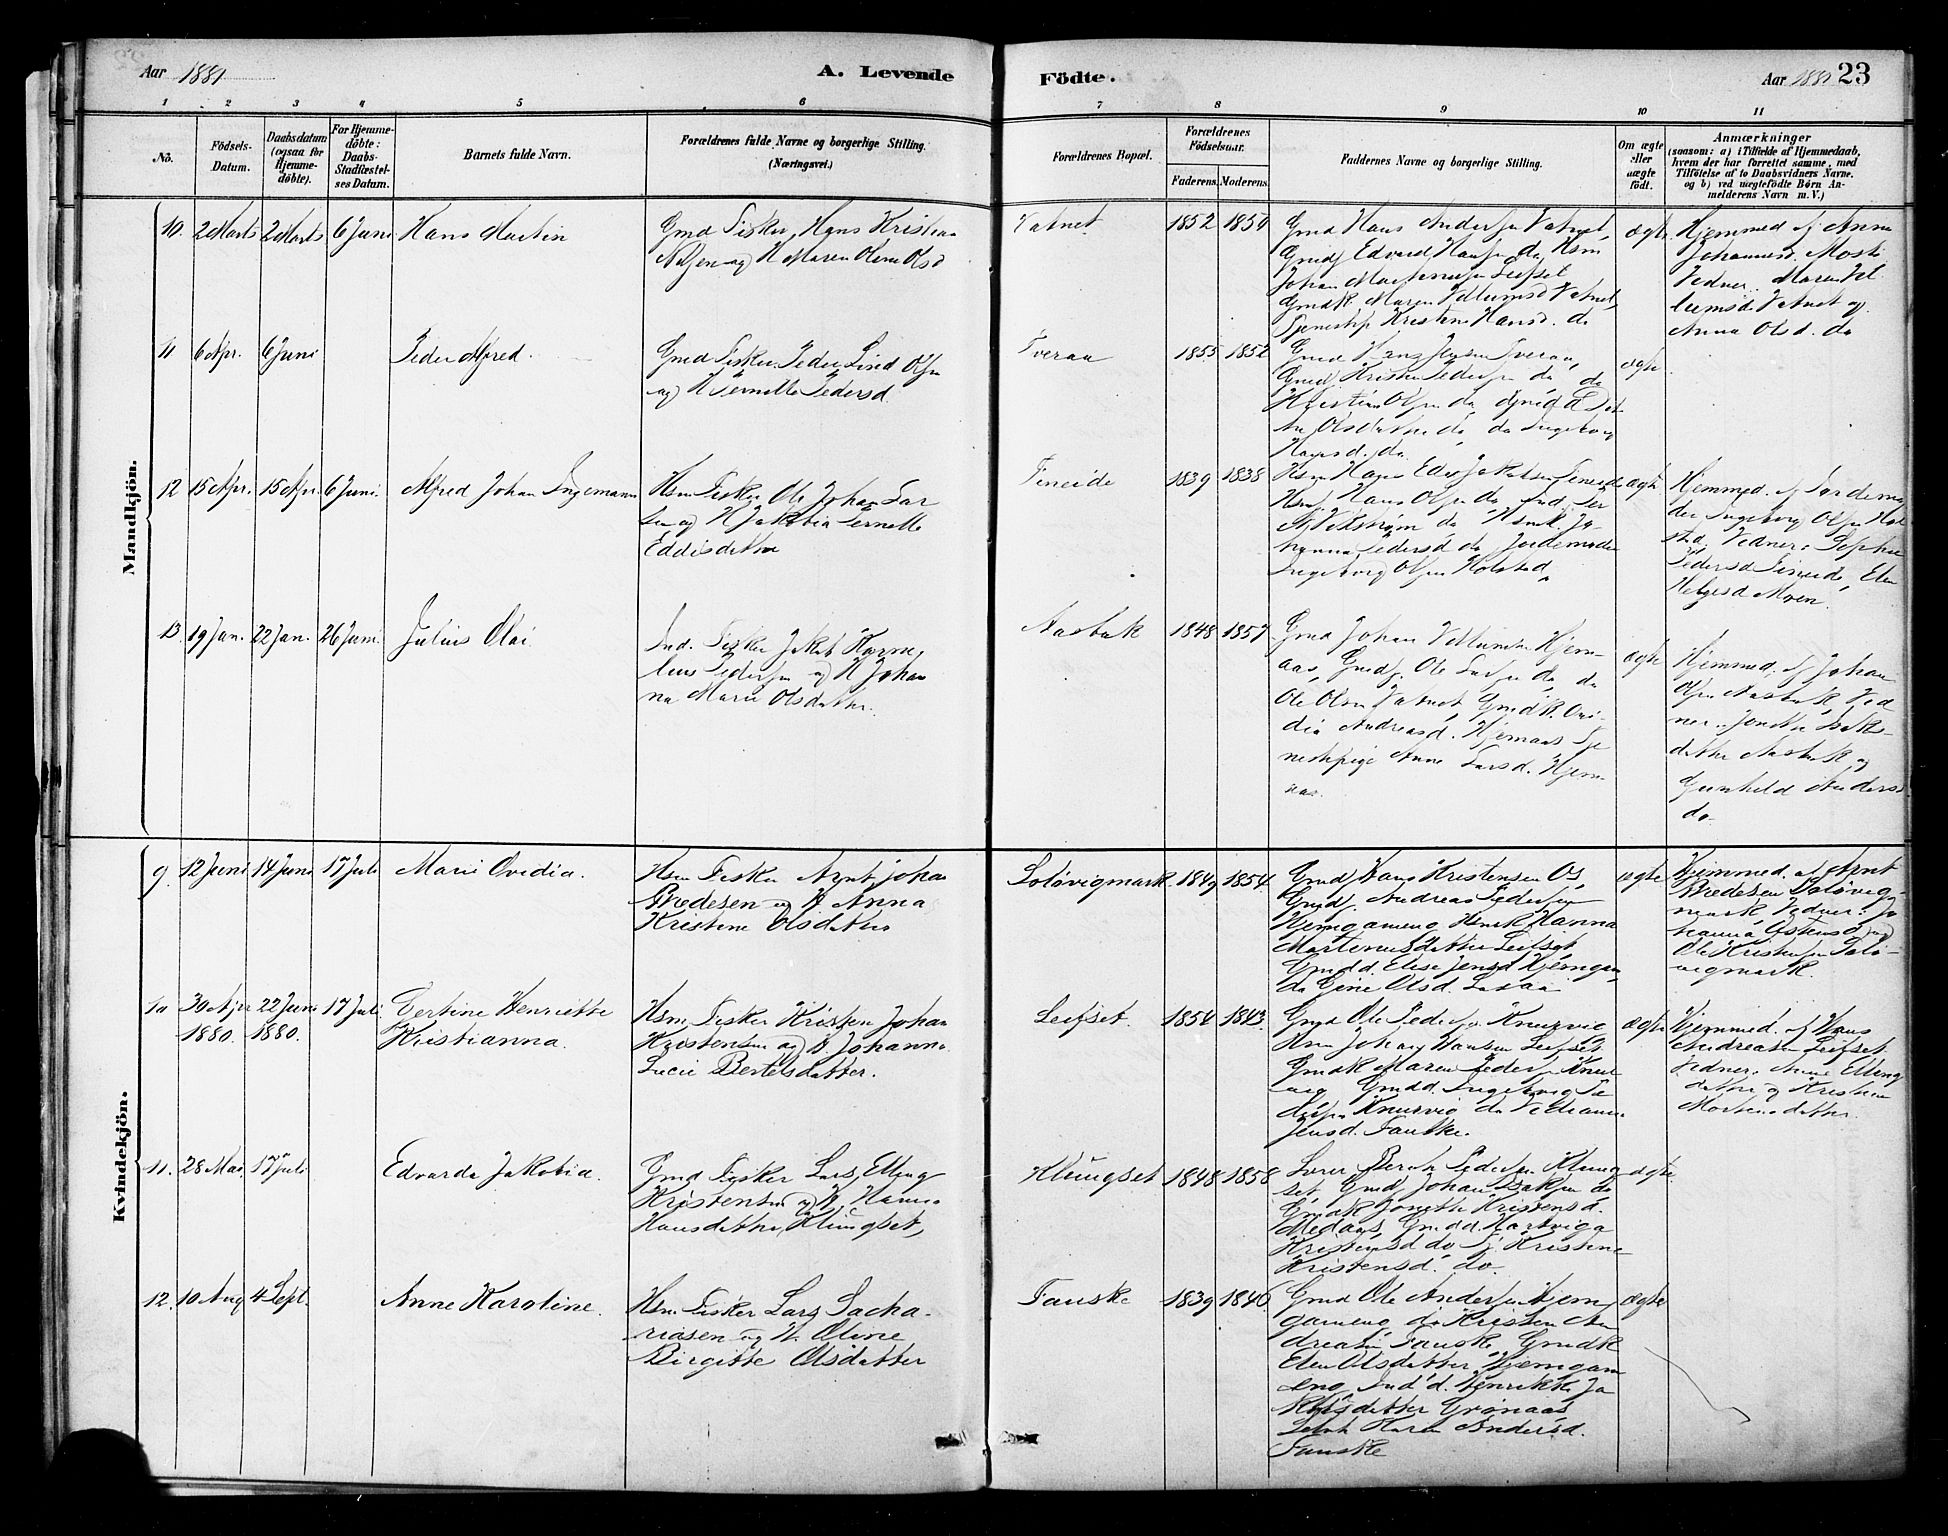 Aar 1881
A. Levende
Födte.
Aar 1881 23
1 2 3 4 5 6 7 8 9 10 11
No.
Födsels-
Datum.
Daabsdatum
(ogsaa for
Hjemme-
döbte).
For Hjemme-
döbte:
Daabs-
Stadfæstel-
ses Datum.
Barnets fulde Navn.
Forældrenes fulde Navne og borgerlige Stilling.
(Næringsvei.)
Forældrenes Bopæl.
Forældrenes
Födselsaar.
Faderens. Moderens.
Faddernes Navne og borgerlige Stilling.
Om ægte
eller
uægte
født.
Anmærkninger
(saasom: a) i Tilfælde af Hjemmedaab,
hvem der har forrettet samme, med
Tilföielse af to Daabsvidners Navne.
og b) ved uægtefödte Börn An-
melderens Navn m. V.)
Mandkjön.
10. 2 Marts 2 Marts 6 Juni Hans Martin
Gmd Fisker Hans Kristian
og H Maren Olsd
Vatnet 1852 1850
Gmd Hans Andersen Vatnet,
Gmdf Edvard Hansen do Hsm
Johan Leifset
Gmdk. Maren Vatnet,
Kristine Hansd. do
ægte.
Hjemmed. af Anna
Johannesd. Mosti
Vidner. Maren Vil
lumsd Vatnet og
Anna Olsd. do
11 6 Apr. 6 Juni Peder Alfred.
Gmd Fisker Peder Lind Olsen
og H Pernille Pedersd.
Tveraa 1855 1852
Gmd Hans Jensen Tveraa,
Gmdf. Kristen Pedersen do, do
Kristian Olsen do,
Olsdatter do, do Ingeborg
Hansd. do.
ægte.
12 15 Apr. 15 Apr. 6 Juni Alfred Johan Ingemann
Hsm Fisker Ole Johan Lar
sen og H Jakobia Pernille
Eddisdatter
Fineide 1839 1838
Hsm Hans Edv. Jakobsen Fineide
Hsm. Hans Olsen do Ind. Per
A. Vikstrøm do Hsmk. Jo-
hanna Pedersd do Jordemoder
Ingeborg Olsen Holstad.
ægte
Hjemmed. af Jordemo
der Ingeborg Olsen Hol
stad. Vidner: Sophie
Pedersd Fineide, Elen
Helgesd Moen.
13. 19 Jan. 22 Jan. 26 Juni Julius Olai
Ind. Fisker Jakob Korne
lius Pedersen og H Johan
na Marie Olsdatter.
Aasbak 1848 1857
Gmd Johan Villumsen Hjem-
aas, Gmdf. Ole Larsen do, do
Ole Olsen Vatnet, Gmdk. Ovi-
dia Andreasd. Hjemaas Tje
nestepige Anne Larsd. Hjem
aas.
ægte
Hjemmed. af Johan
Olsen Aasbak Vid
ner: Jonetta Isaks-
datter Aasbak og
Gunhild Andersd
do.
Kvindekjön.
9. 12 Juni 14 Juni 17 Juli Marie Ovidia.
Hsm Fisker Arnt Johan
Bredesen og H Anna
Kristine Olsdatter
Løløvigmark. 1849 1854.
Gmd Hans Kristensen Os,
Gmdf. Andreas Pedersen
Hjemgameng Hsmk Hanna
Martenusdatter Leifset,
Gmdd. Elese Jensd Hjemgam,
do Gine Olsd. Lasaa
ægte
Hjemmed. af Arnt
Bredesen Løløvig-
mark. Vidner: Jo
hanna Østensd og
Ole Kristensen Lølø-
vigmark.
10 30 Apr 22 Juni 17 Juli. Bertine Henriette
1880. 1880. Kristianna.
Hsm Fisker Kristen Johan
Kristensen og H Johanna
Lucie Bertelsdatter.
Leifset. 1854 1843.
Gmd Ole Pedersen Knurvig
Hsm Johan Hansen Leifset
Gmdk Maren Pedersen Knur
vig Gmdd. Ingeborg Pe
dersen Knurvig do
Jensd. Fauske.
ægte
Hjemmed. af Hans
Andreasen Leifset
Vidner: Anne Elling
datter og Kristine
Mortensdatter.
11. 28 Mai. 17 Juli Edvarda Jakobia.
Gmd Fisker Lars Elling
Kristensen og H. Hanna
Hansdatter Klungset,
Klungset 1848 1858
Lærer Bernt Pedersen Klung
set, Gmdf. Johan Isaksen do
Gmdk Jonette Kristensd.
Medaas, Gmdd. Hartviga
Kristensd do Tj. Kristine
Kristensd. do.
ægte
12. 10 Aug 4 Sept. Anne Karoline.
Hsm Fisker Lars Sacha-
riasen og H. Oline
Birgitte Olsdatter
Fauske 1839 1846
Gmd Ole Andersen Hjem
gameng, do Kristen An
dreasen Fauske, Gmdk
Elen Olsdatter Hjemgam
eng, Ind d. Henrikke Ja
kobsdatter Grønaas
Karen Andersd.
Fauske
ægte